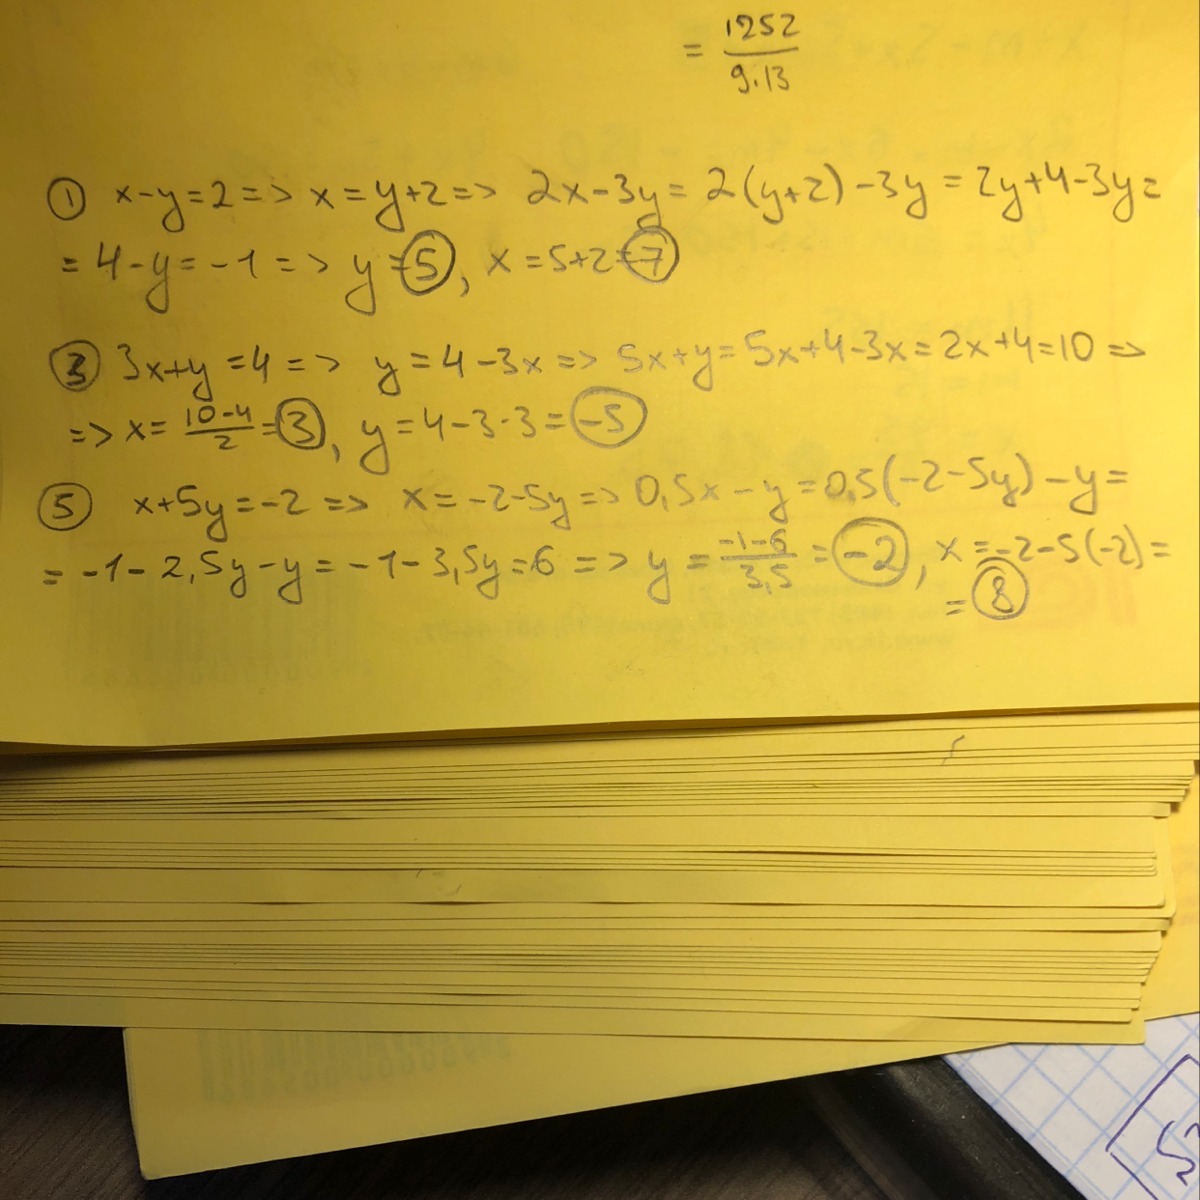 = 1252 / 9·13
① x-y=2 => x=y+2 => 2x-3y = 2(y+2)-3y = 2y+4-3y =
= 4-y = -1 => y=5, x=5+2=7
③ 3x+y=4 => y=4-3x => 5x+y=5x+4-3x=2x+4=10 =>
=> x= 10-4 / 2 =3, y=4-3·3=-5
⑤ x+5y=-2 => x=-2-5y => 0,5x-y=0,5(-2-5y)-y=
= -1-2,5y-y=-1-3,5y=6 => y= -1-6 / 3,5 = -2, x=-2-5(-2)=
= 8